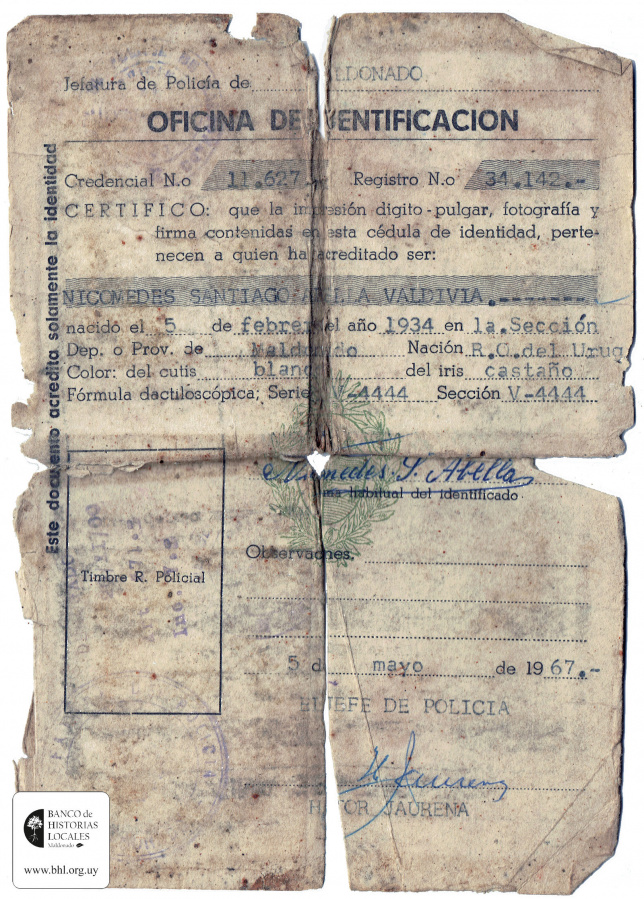 Jefatura de Policía de MALDONADO
OFICINA DE IDENTIFICACION
Credencial N.o 11.627.- Registro N.o 34.142.-
CERTIFICO: que la impresión digito-pulgar, fotografía y
firma contenidas en esta cédula de identidad, perte-
necen a quien ha acreditado ser:
NICOMEDES SANTIAGO ABELLA VALDIVIA.-------
nacido el 5 de febrero del año 1934 en 1a.Sección
Dep. o Prov. de Maldonado Nación R.O.del Urug
Color: del cutis blanco del iris castaño
Fórmula dactiloscópica; Serie V-4444 Sección V-4444
Nicomedes S. Abella
firma habitual del identificado
Este documento acredita solamente la identidad
Timbre R. Policial
Observaciones.
5 de mayo de 1967.-
EL JEFE DE POLICIA
JAURENA
BANCO de
HISTORIAS
LOCALES
Maldonado
www.bhl.org.uy